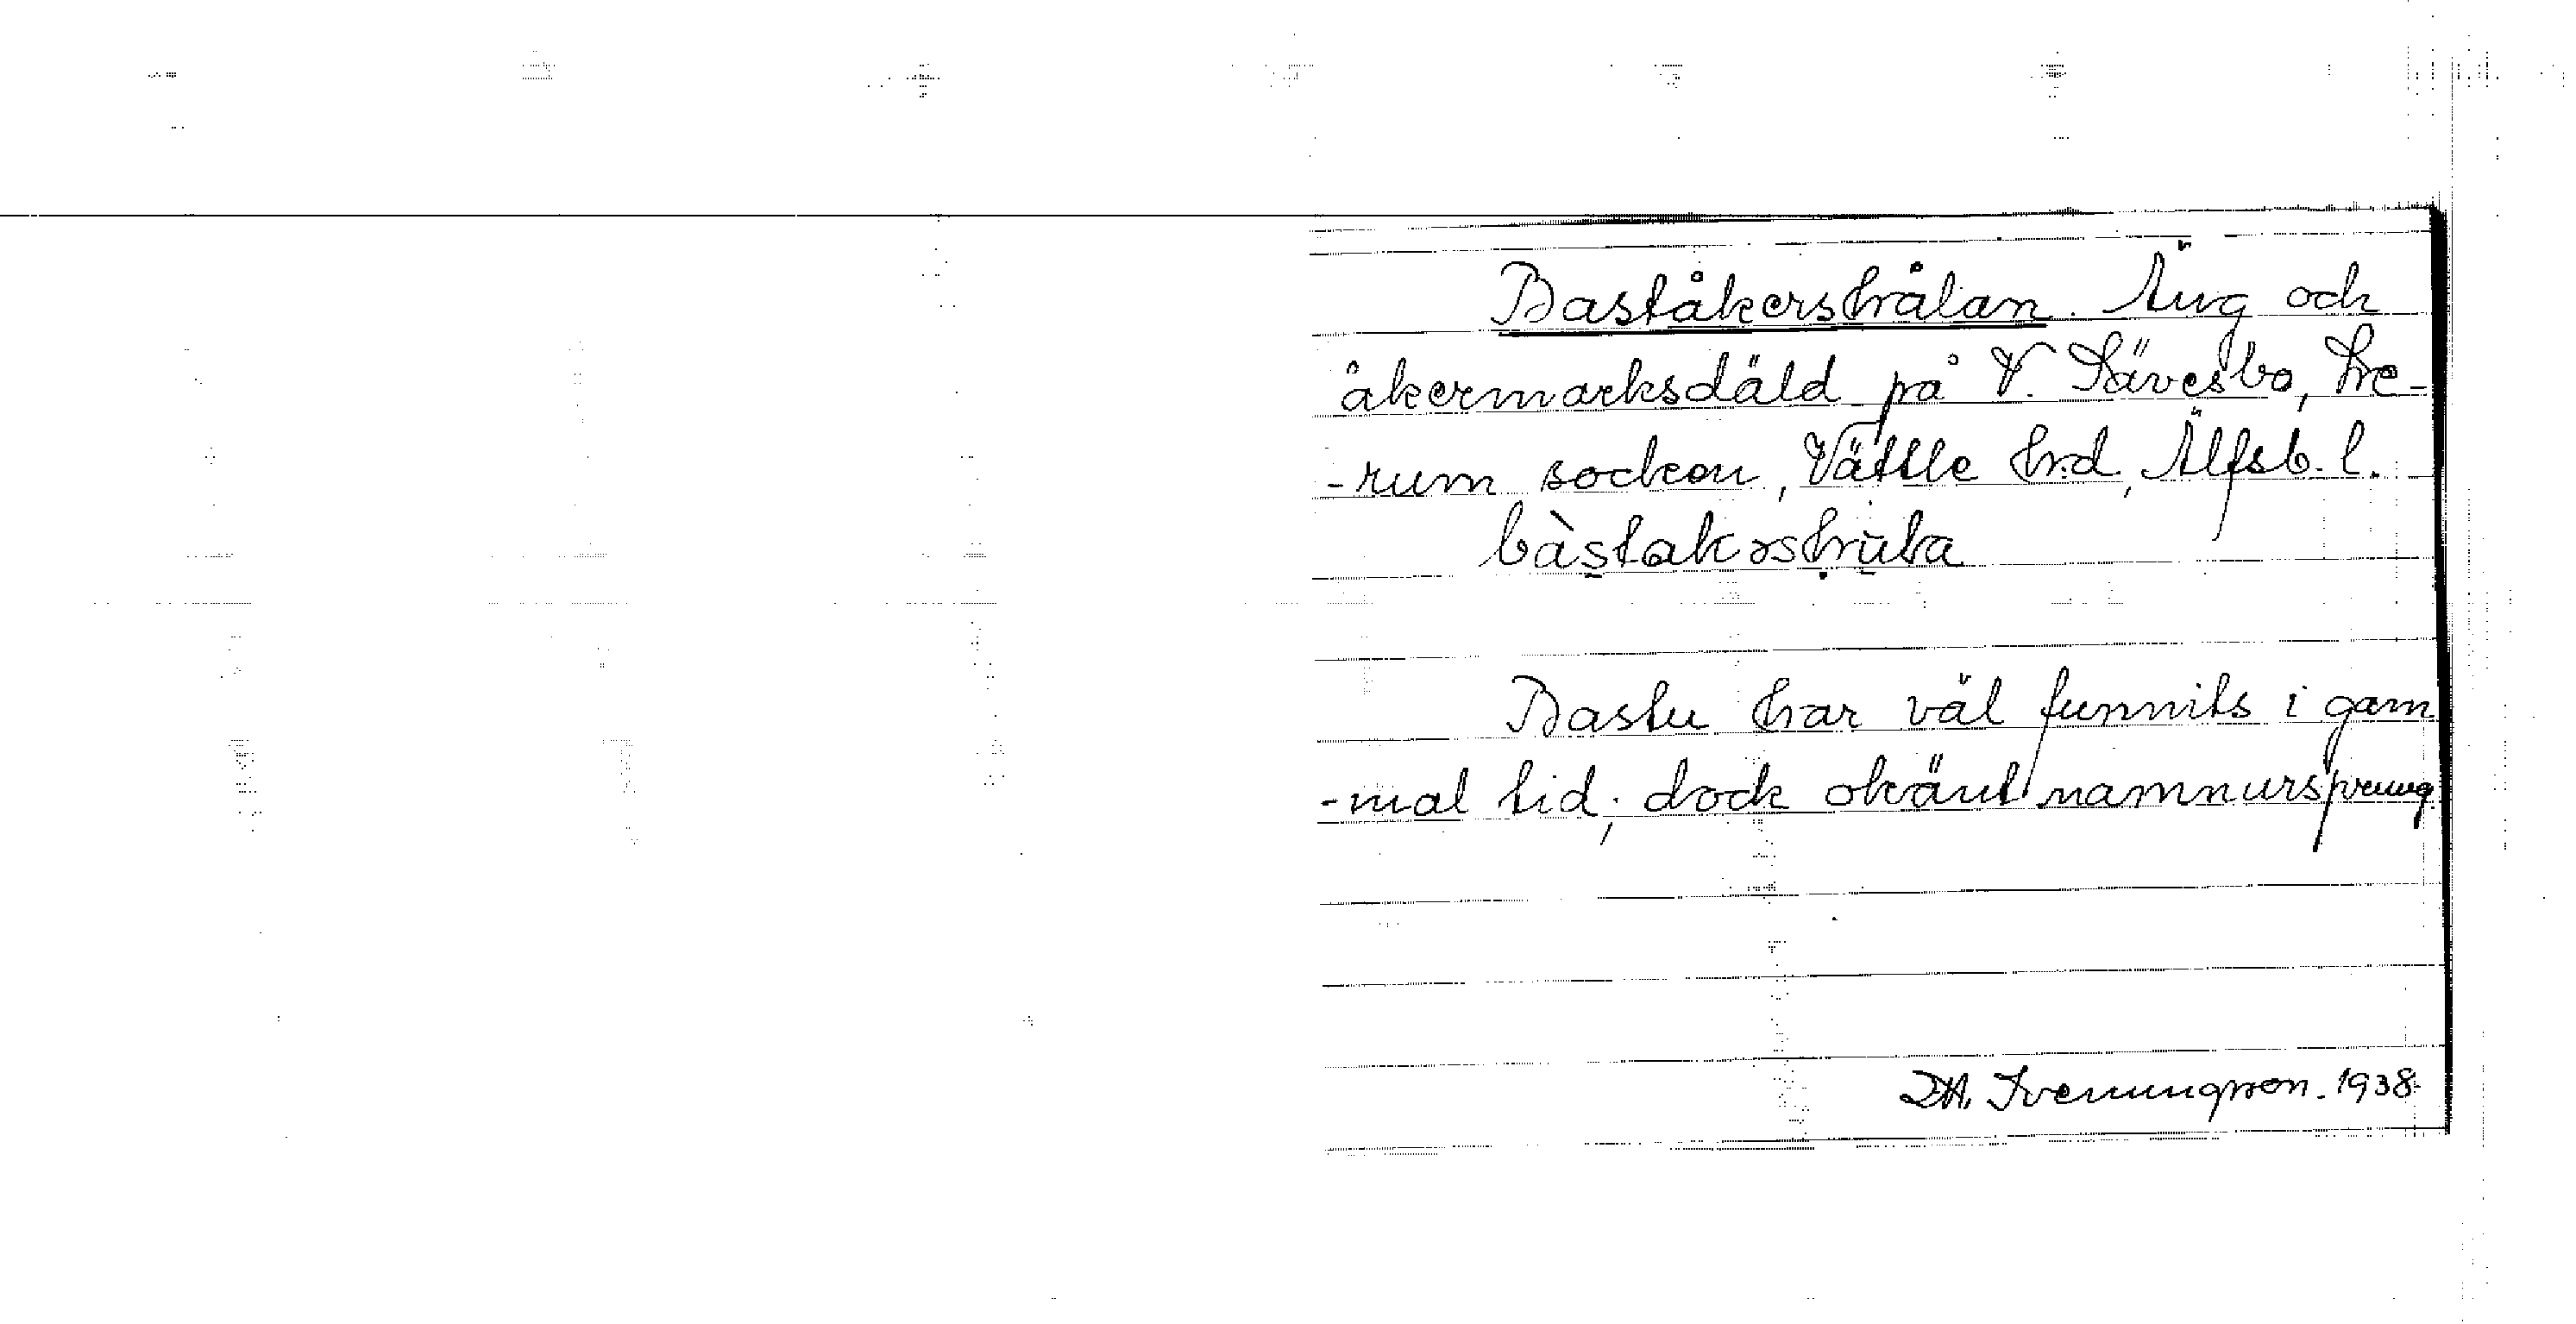 Baståkershålan. Äng och
åkermarksdäld på V. Sävesbo, Le-
-rum socken, Vättle hrd, Älfsb. l.
bàstakəshula
Bastu har väl funnits i gam
-mal tid; dock okänt namnursprung.
D.A. Svenungsson. 1938